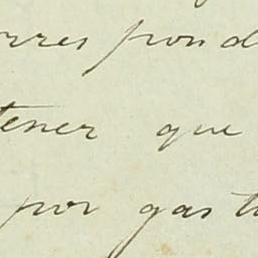 rres pond
tener que
por gas t